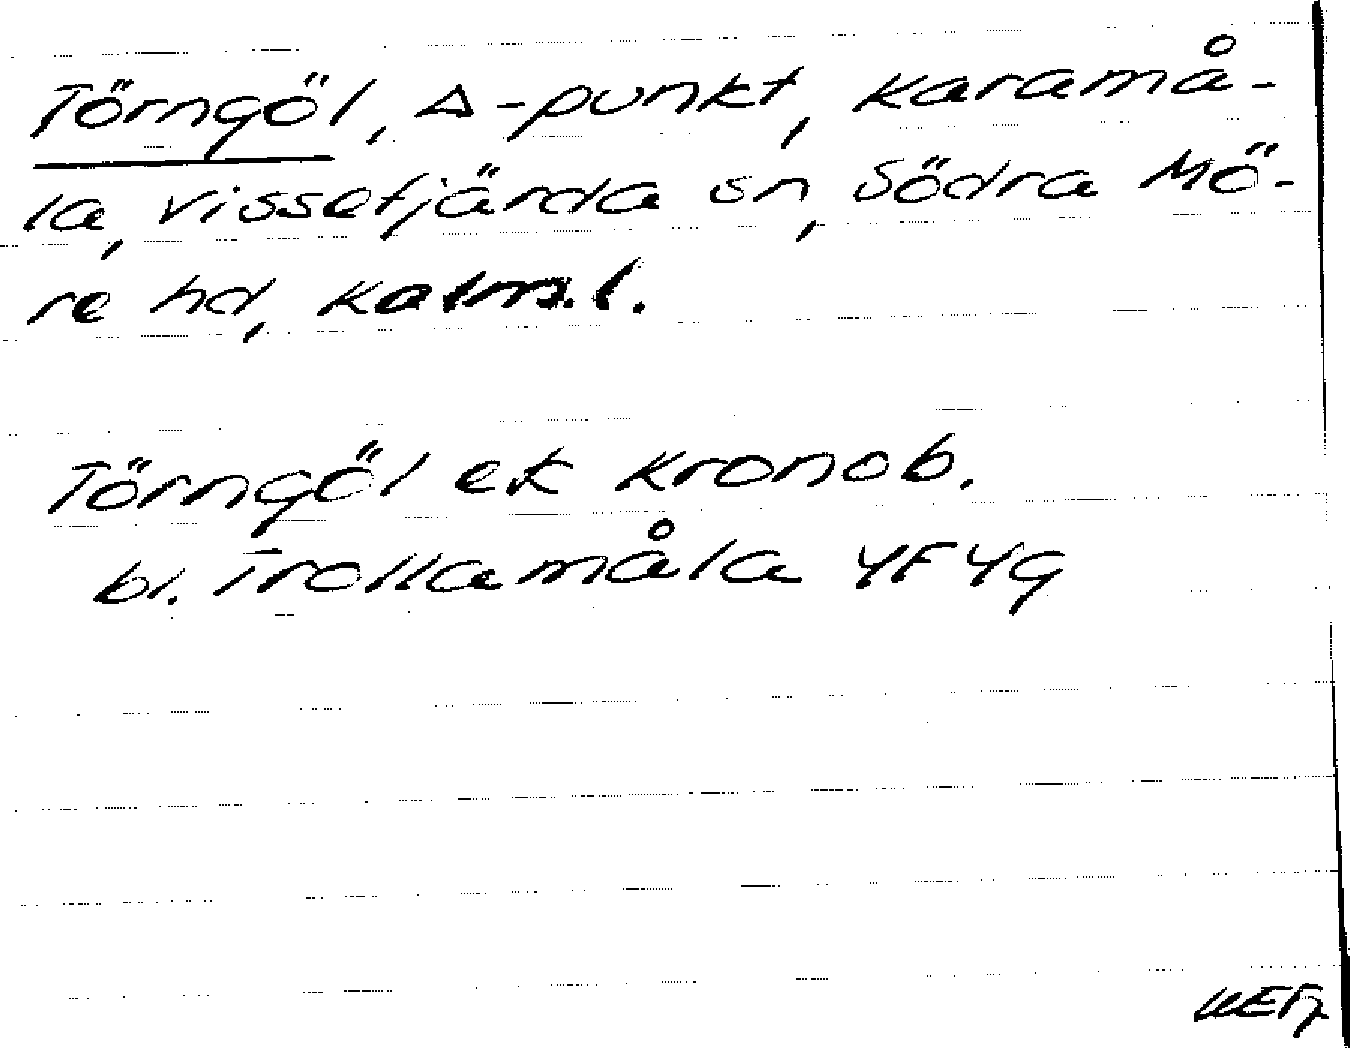 Törngöl, Δ-punkt, Karamå-
la, Vissefjärda sn, Södra Mö-
re hd, Kalm.l.
Törngöl ek Kronob.
bl. Trollamåla 4F4g